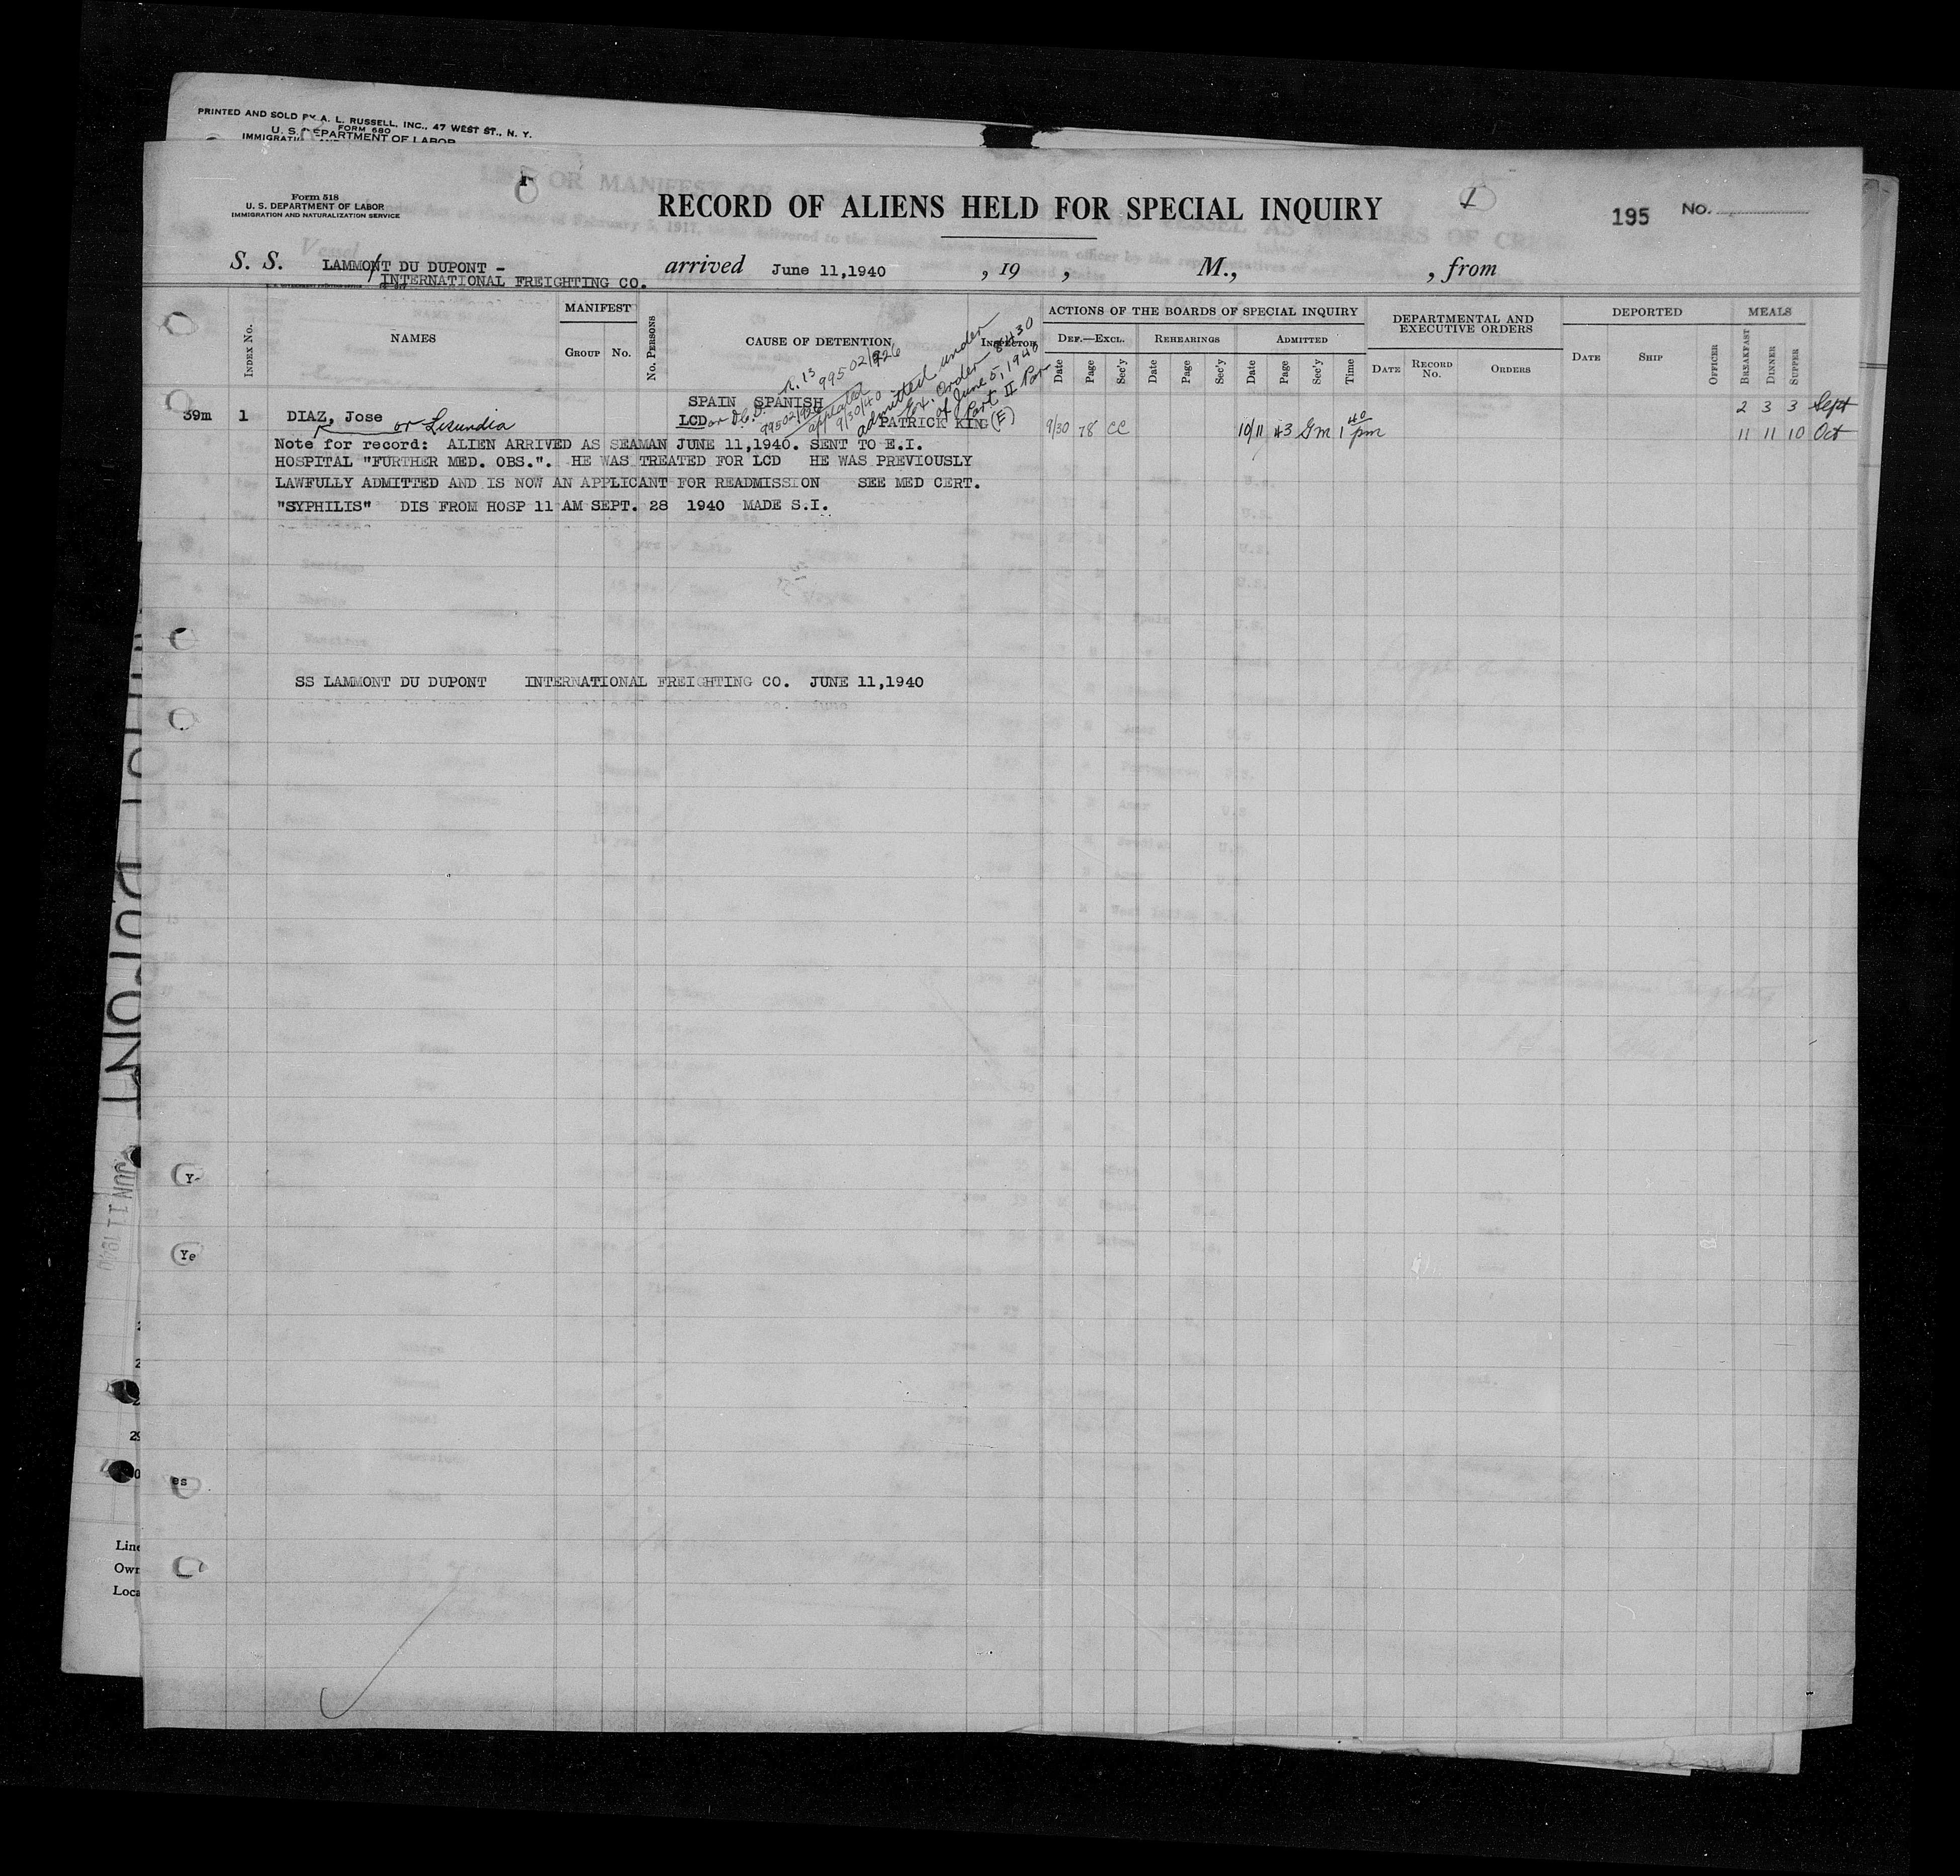 PRINTED AND SOLD BY A. L. RUSSELL, INC., 47 WEST ST., N. Y.
FORM 680
U. S. DEPARTMENT OF LABOR
Form 518
U. S. DEPARTMENT OF LABOR
IMMIGRATION AND NATURALIZATION SERVICE
RECORD OF ALIENS HELD FOR SPECIAL INQUIRY
195 No.
S. S. LAMMONT DU DUPONT - arrived June 11,1940 , 19 , M., , from
INTERNATIONAL FREIGHTING CO.
INDEX No. NAMES MANIFEST GROUP No. No. PERSONS CAUSE OF DETENTION INSPECTOR
ACTIONS OF THE BOARDS OF SPECIAL INQUIRY
DEF.—EXCL. REHEARINGS ADMITTED
Date Page Sec'y Date Page Sec'y Date Page Sec'y Time
DEPARTMENTAL AND EXECUTIVE ORDERS
DATE RECORD No. ORDERS
DEPORTED
DATE SHIP OFFICER
MEALS
BREAKFAST DINNER SUPPER
99502/926
admitted under
Ex. Order 8430
of June 5, 1940
Part II Par
SPAIN SPANISH
2 3 3 Sept
39m 1 DIAZ, Jose or Lesundia LCD 99502/926 appealed 9/30/40 PATRICK KING (F) 9/30 78 CC 10/11 43 Gm 1 40 pm
11 11 10 Oct
Note for record: ALIEN ARRIVED AS SEAMAN JUNE 11,1940. SENT TO E.I.
HOSPITAL "FURTHER MED. OBS.". HE WAS TREATED FOR LCD HE WAS PREVIOUSLY
LAWFULLY ADMITTED AND IS NOW AN APPLICANT FOR READMISSION SEE MED CERT.
"SYPHILIS" DIS FROM HOSP 11 AM SEPT. 28 1940 MADE S.I.
SS LAMMONT DU DUPONT INTERNATIONAL FREIGHTING CO. JUNE 11,1940
DUPONT
JUN 11 1940
Y-
Ye
29
es
Line
Own
Loca